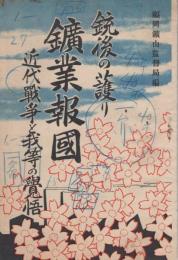 福岡鑛山監督局編
銃後の護り
鑛業報國
近代戰爭と我等の覺悟
1-
27